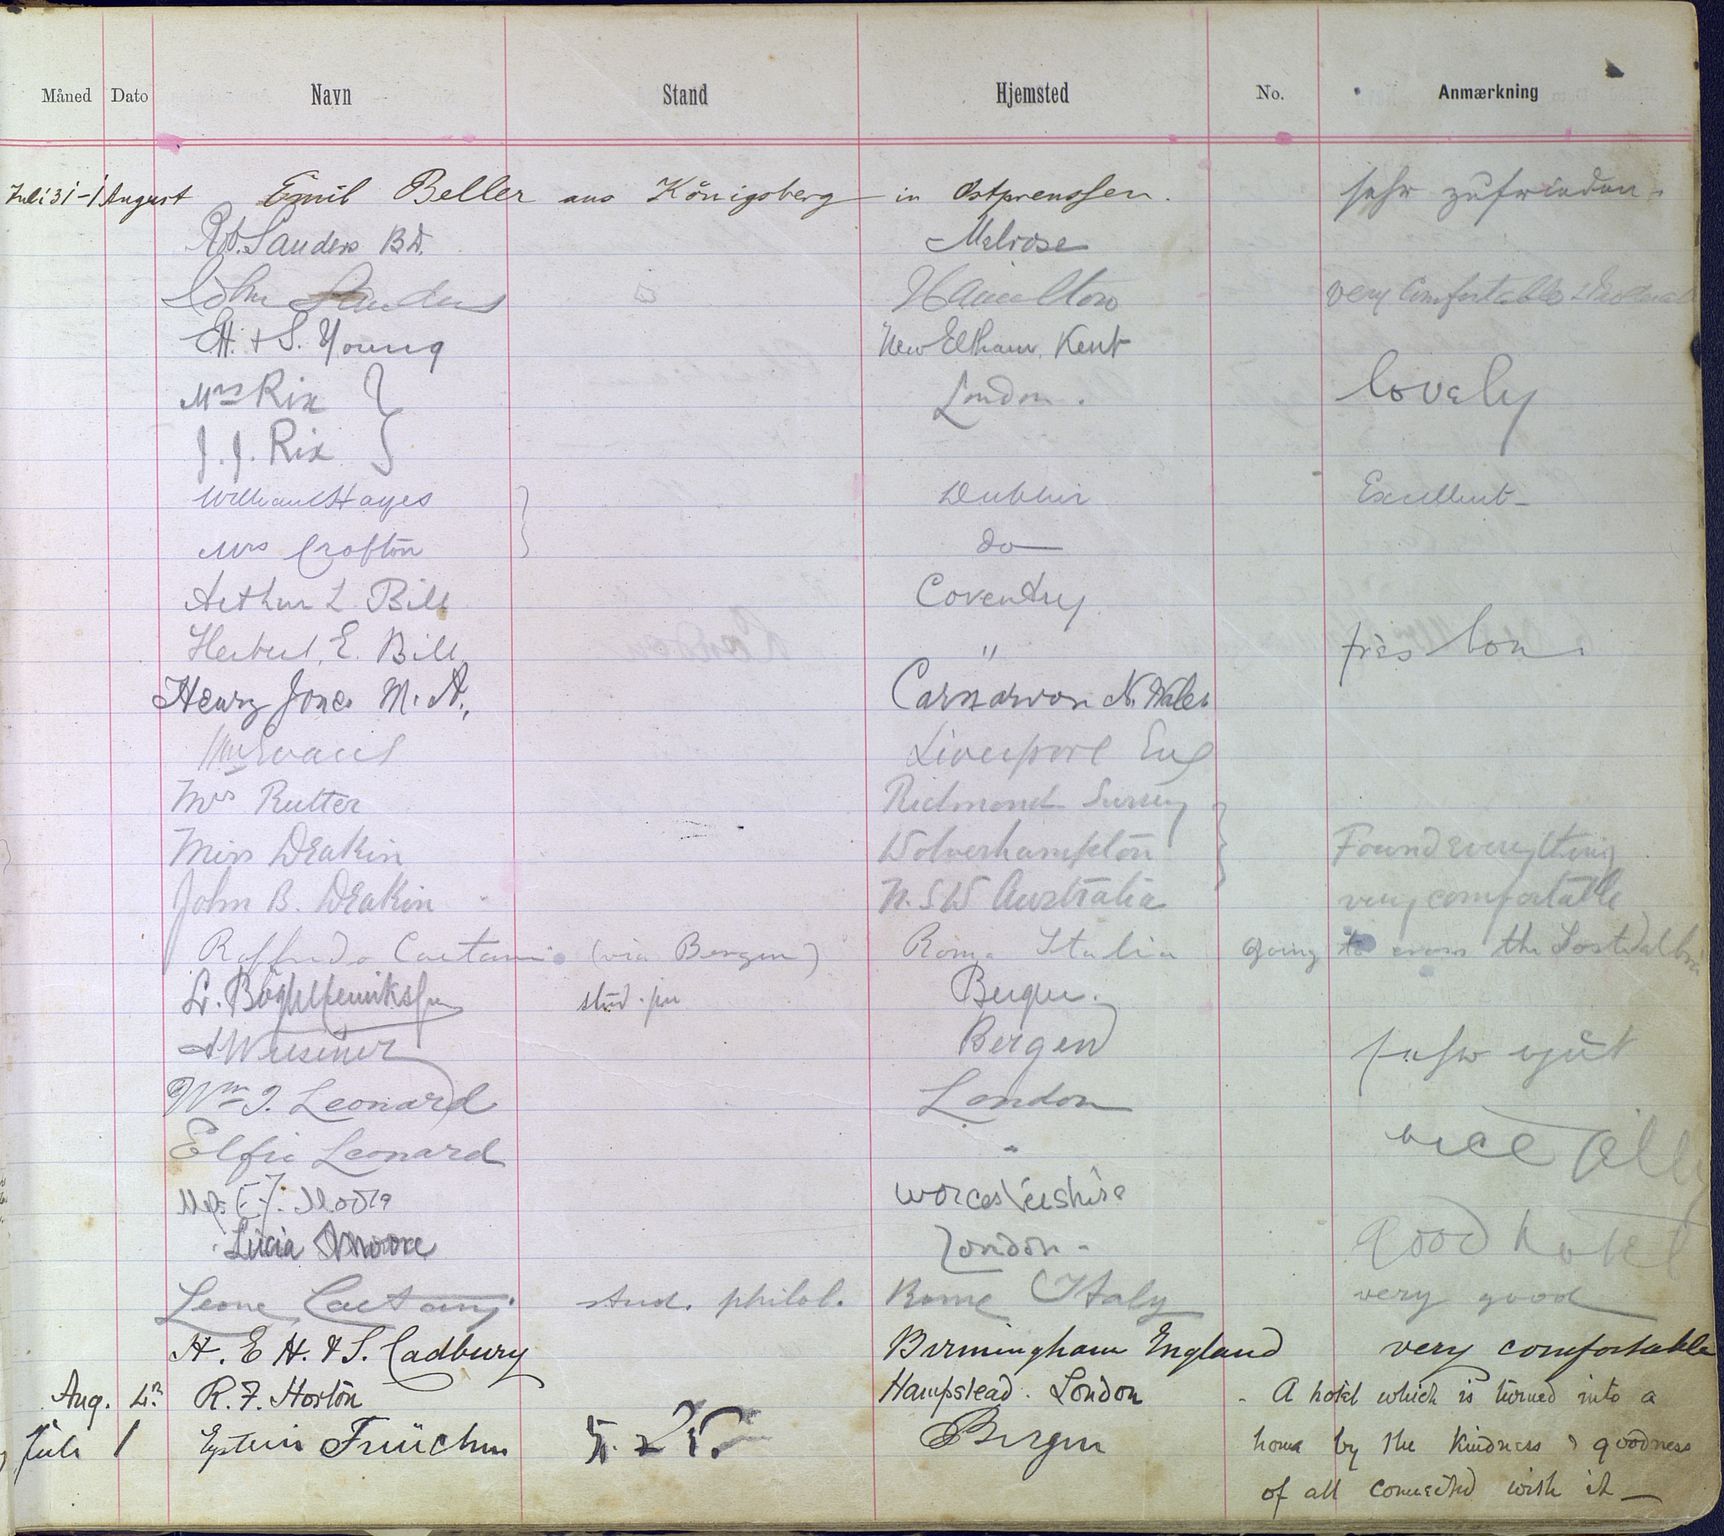 Måned Dato Navn Stand Hjemsted No. Anmærkning
Juli 31 - 1 August Emil Beller aus Königsberg in Ostpreussen. sehr zufrieden.
Rob. Sanders B.D. Melrose
John Sanders Hamilton very Comfortable
E.H. + S. Young New Eltham, Kent
Mrs Rix } London. lovely
J. J. Rix }
William Hayes } Dublin Excellent
Mrs Crofton } do
Arthur L Bill Coventry
Herbert. E. Bill " très bon.
Henry Jones M.A., Carnarvon N. Wales
Wm Evans Liverpool Eng
Mrs Rutter Richmond Surrey
Miss Deakin Wolverhampton Found everything
John B. Deakin N.S.W Australia very comfortable
Roffredo Caetani (via Bergen) Roma Italia going to cross the
stud. Bergen.
Bergen sehr gut
Wm J. Leonard London
Elsie Leonard " nice
Worcestershire
Lucia Moore London - good hotel
Leone Caetani stud. philol. Rome Italy very good
H. E H. & S. Cadbury Birmingham England very comfortable
Aug. 4. R. F. Horton Hampstead. London - A hotel which is turned into a
Juli 1 Bergen home by the kindness & goodness
of all connected with it —